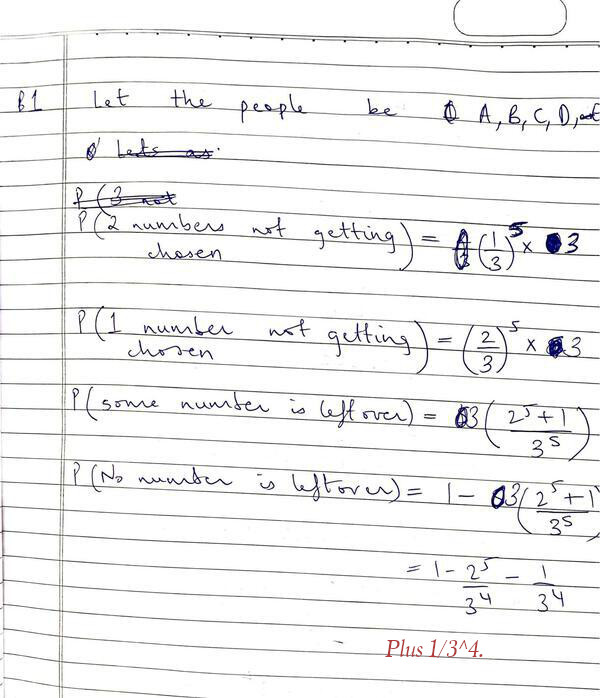 B1 Let the people be A, B, C, D,
Lets as
P(3 not
P(2 numbers not getting chosen) = (1/3)^5 × 3
P(1 number not getting chosen) = (2/3)^5 × 3
P(some number is leftover) = 3((2^5+1)/3^5)
P(No number is leftover) = 1 - 3((2^5+1)/3^5)
= 1 - 2^5/3^4 - 1/3^4
Plus 1/3^4.